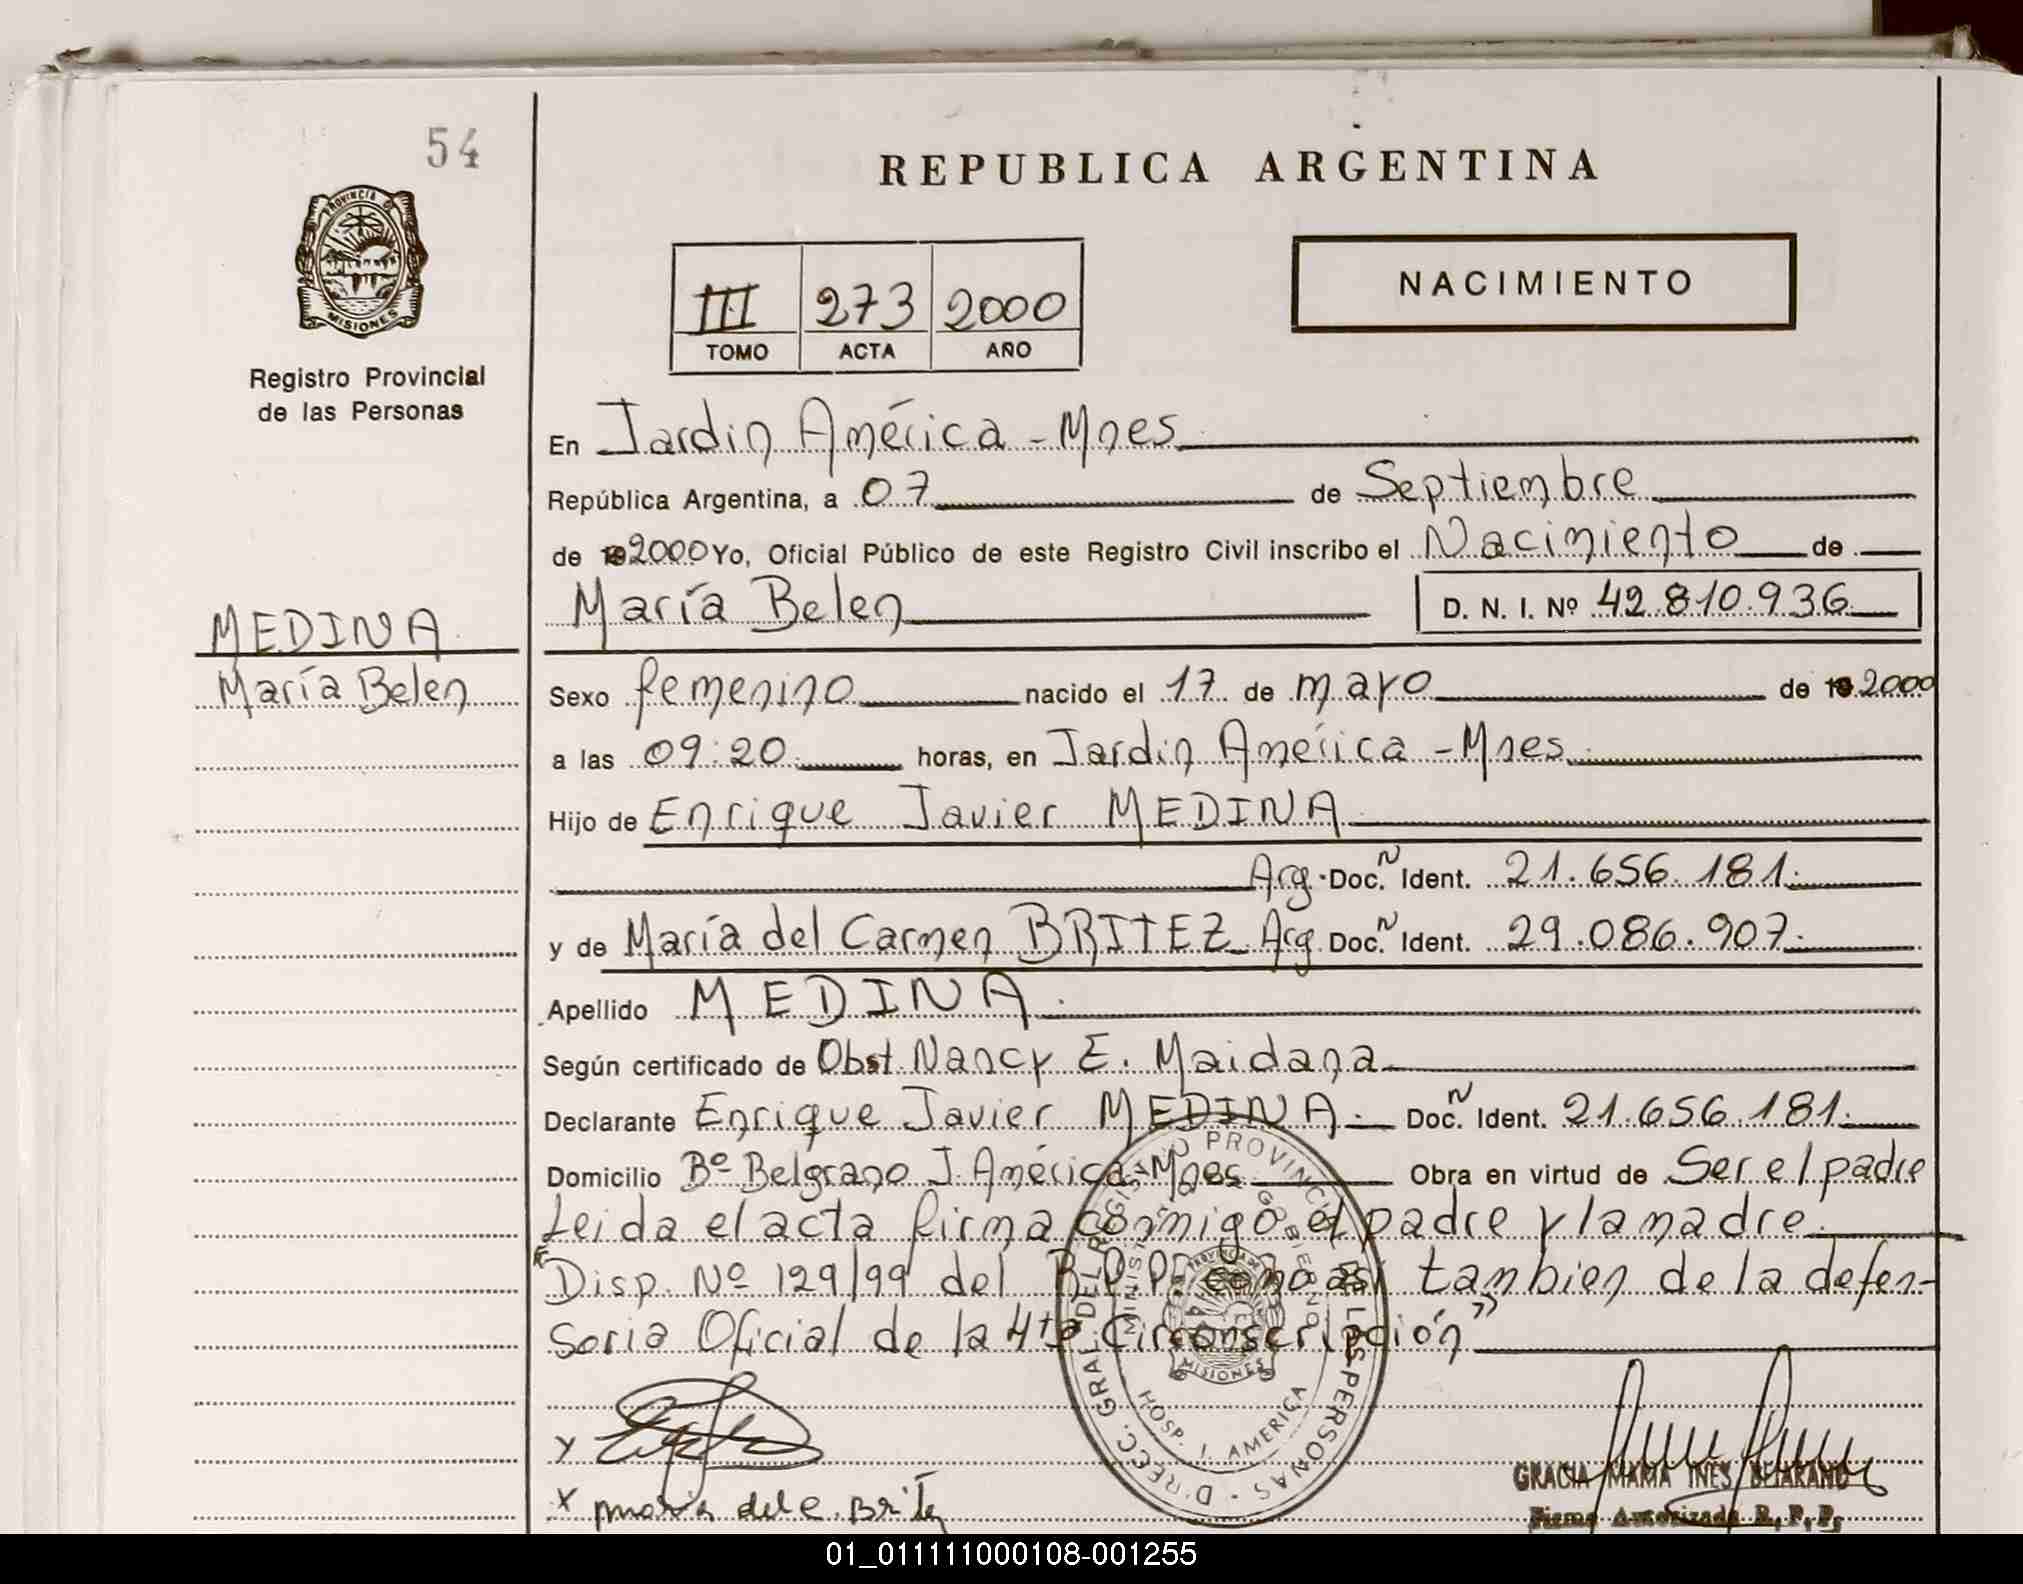 54
REPUBLICA ARGENTINA
PROVINCIA DE
MISIONES
Registro Provincial
de las Personas
III 273 2000
TOMO ACTA AÑO
NACIMIENTO
En Jardin América - Mnes
República Argentina, a 07 de Septiembre
de 2000 Yo, Oficial Público de este Registro Civil inscribo el Nacimiento de
María Belen D. N. I. Nº 42.810.936
MEDINA
María Belen
Sexo femenino nacido el 17 de mayo de 2000
a las 09:20 horas, en Jardin América - Mnes
Hijo de Enrique Javier MEDINA
Arg. Doc. N Ident. 21.656.181.
y de María del Carmen BRITEZ Arg. Doc. N Ident. 29.086.907.
Apellido MEDINA.
Según certificado de Obst. Nancy E. Maidana
Declarante Enrique Javier MEDINA. Doc. N Ident. 21.656.181.
Domicilio Bº Belgrano J. América Mnes Obra en virtud de Ser el padre
Leida el acta firma conmigo el padre y la madre.
"Disp. Nº 129/99 del R.P.P. como así tambien de la defen-
soria Oficial de la 4ta Circonscripción"
DIREC. GRAL. DEL REGISTRO PROVINCIAL DE LAS PERSONAS
MINIST. GOBIERNO
PROVINCIA DE
MISIONES
HOSP. J. AMERICA
x maria del c. Britez
GRACIA MARIA INES BEJARANO
Firma Autorizada R. P. P.
01_011111000108-001255